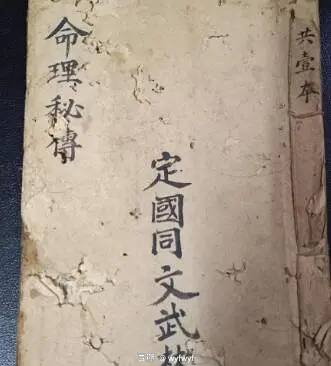 共壹本
定國同文武
命理秘傳
@wyfwyf